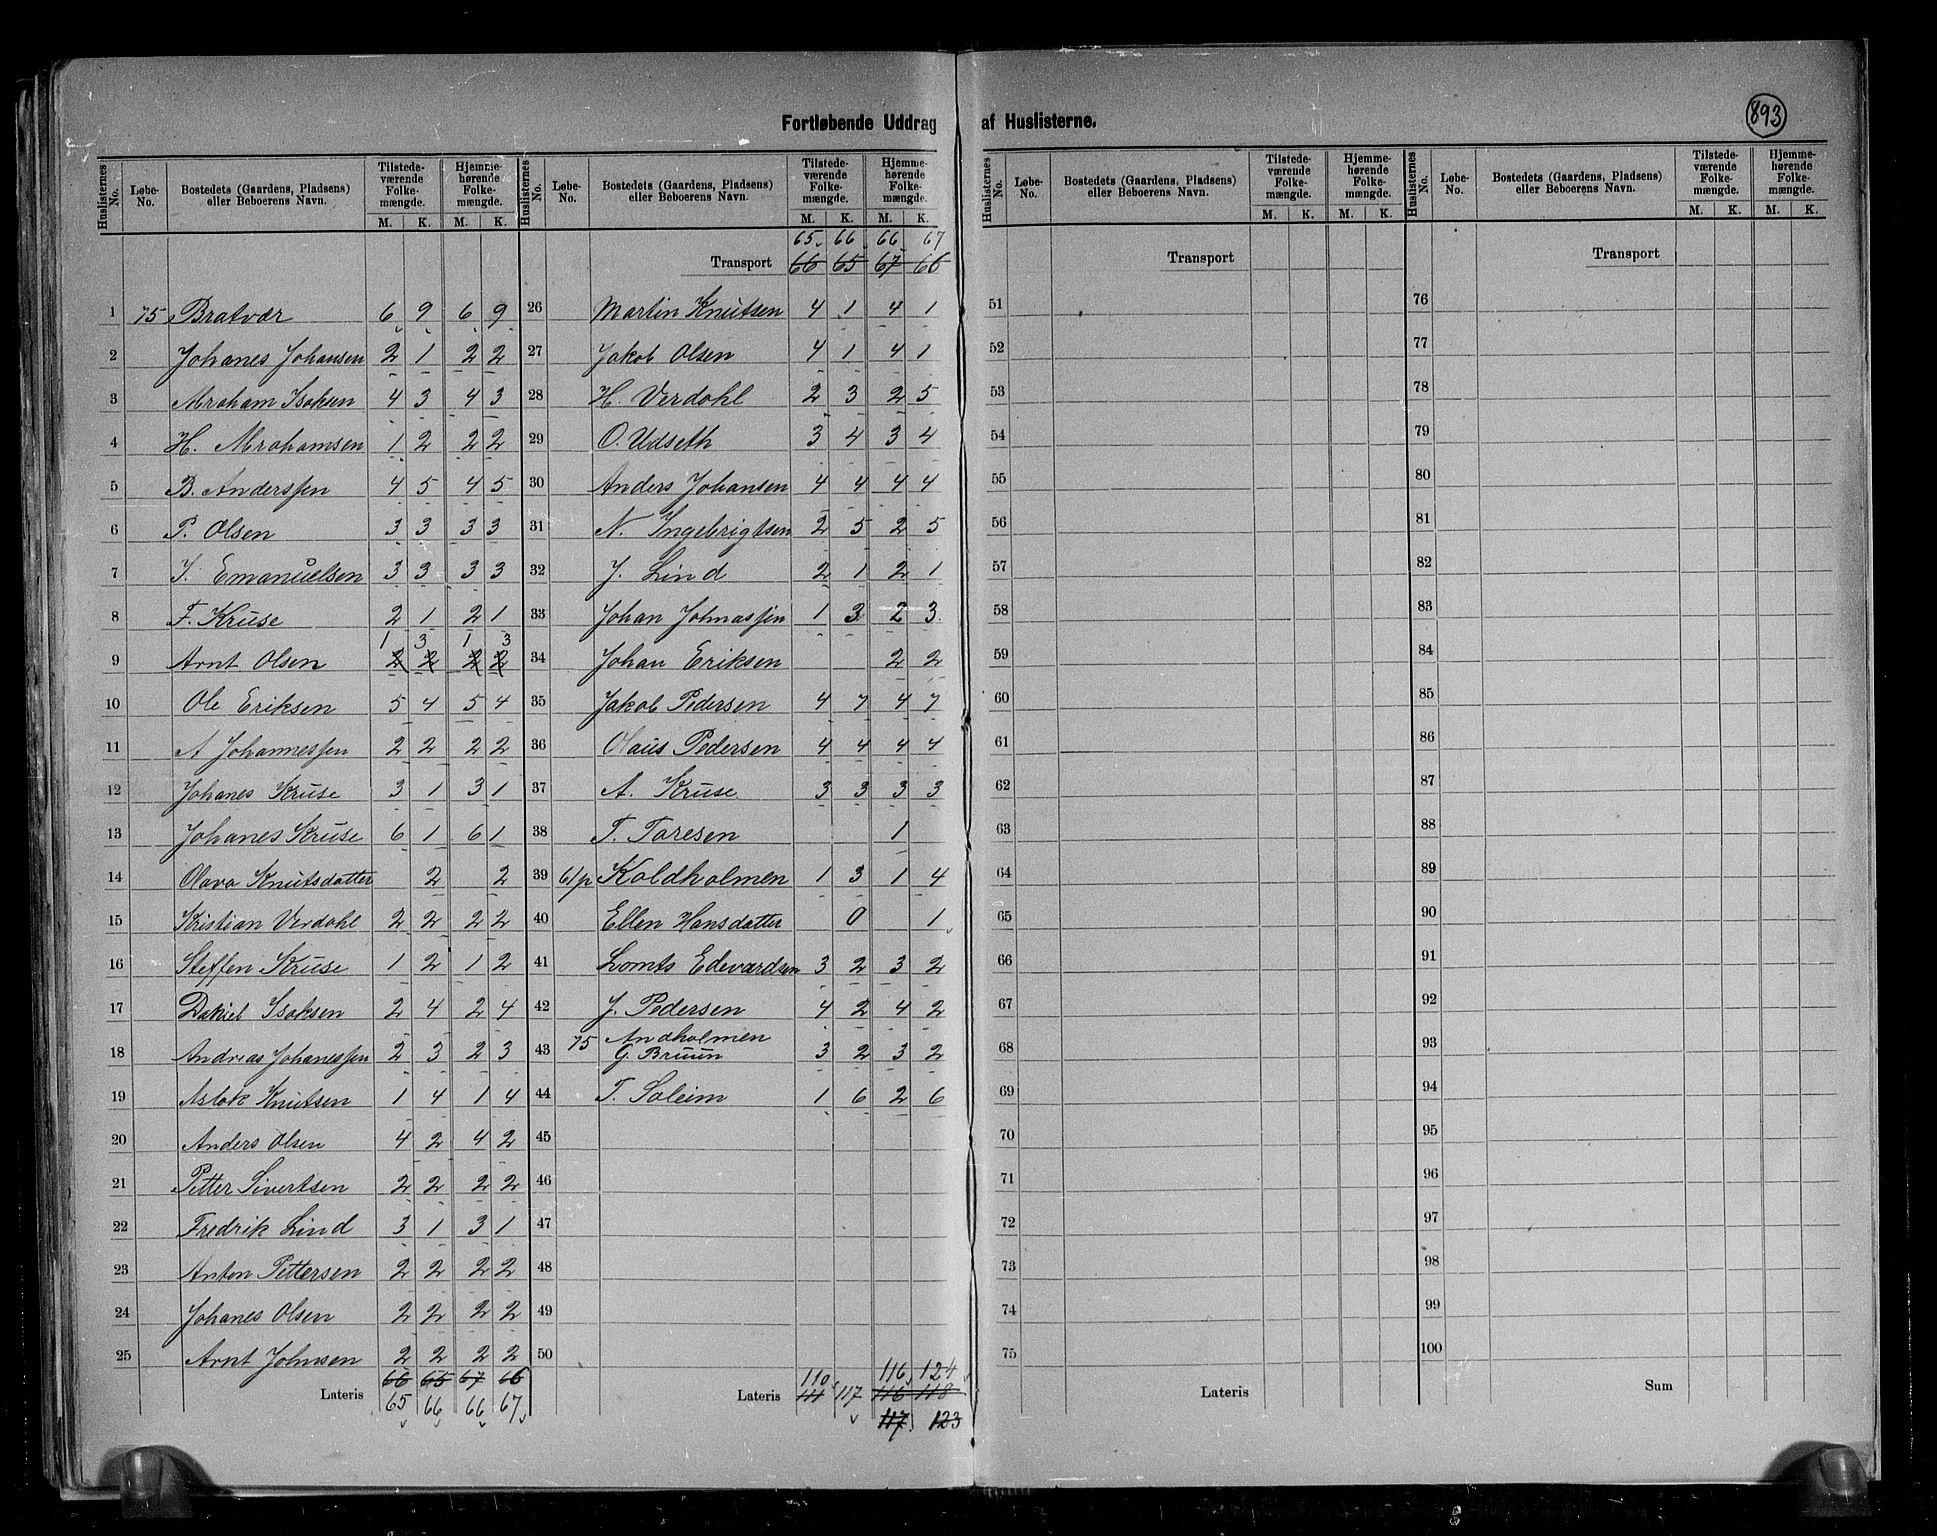 893
Fortløbende Uddrag af Huslisterne.
Huslisternes No. Løbe-No. Bostedets (Gaardens, Pladsens) eller Beboerens Navn. Tilstedeværende Folkemængde. M. K. Hjemmehørende Folkemængde. M. K.
1 75 Bratvær 6 9 6 9
2 Johanes Johansen 2 1 2 2
3 Abraham Isaksen 4 3 4 3
4 H. Abrahamsen 1 2 2 2
5 B. Anderssen 4 5 4 5
6 P. Olsen 3 3 3 3
7 J. Emanuelsen 3 3 3 3
8 F. Kruse 2 1 2 1
1 3 1 3
9 Arnt Olsen 2 2 2 2
10 Ole Eriksen 5 4 5 4
11 A Johannessen 2 2 2 2
12 Johanes Kruse 3 1 3 1
13 Johanes Kruse 6 1 6 1
14 Olava Knutsdatter 2 2
15 Kristian Verdahl 2 2 2 2
16 Steffen Kruse 1 2 1 2
17 Daniel Isaksen 2 4 2 4
18 Andreas Johanessen 2 3 2 3
19 Aslak Knutsen 1 4 1 4
20 Anders Olsen 4 2 4 2
21 Petter Sivertsen 2 2 2 2
22 Fredrik Lind 3 1 3 1
23 Anton Pettersen 2 2 2 2
24 Johanes Olsen 2 2 2 2
25 Arnt Johnsen 2 2 2 2
66 65 67 66
Lateris 65 66 66 67
Huslisternes No. Løbe-No. Bostedets (Gaardens, Pladsens) eller Beboerens Navn. Tilstedeværende Folkemængde. M. K. Hjemmehørende Folkemængde. M. K.
65 66 66 67
Transport 66 65 67 66
26 Martin Knutsen 4 1 4 1
27 Jakob Olsen 4 1 4 1
28 H. Verdahl 2 3 2 5
29 O. Udseth 3 4 3 4
30 Anders Johansen 4 4 4 4
31 N. Ingebrigtsen 2 5 2 5
32 J. Lind 2 1 2 1
33 Johan Johnassen 1 3 2 3
34 Johan Eriksen 2 2
35 Jakob Pedersen 4 7 4 7
36 Olaus Pedersen 4 4 4 4
37 A. Kruse 3 3 3 3
38 T. Taresen 1
39 61/p Koldholmen 1 3 1 4
40 Ellen Hansdatter 0 1
41 Edevardsen 3 2 3 2
42 J. Pedersen 4 2 4 2
43 75 Andholmen
G. Bruun 3 2 3 2
44 T. Soleim 1 6 2 6
45
46
47
48
49
50
110 116 124
Lateris 111 117 116 118
117 123
Huslisternes No. Løbe-No. Bostedets (Gaardens, Pladsens) eller Beboerens Navn. Tilstedeværende Folkemængde. M. K. Hjemmehørende Folkemængde. M. K.
Transport
51
52
53
54
55
56
57
58
59
60
61
62
63
64
65
66
67
68
69
70
71
72
73
74
75
Lateris
Huslisternes No. Løbe-No. Bostedets (Gaardens, Pladsens) eller Beboerens Navn. Tilstedeværende Folkemængde. M. K. Hjemmehørende Folkemængde. M. K.
Transport
76
77
78
79
80
81
82
83
84
85
86
87
88
89
90
91
92
93
94
95
96
97
98
99
100
Sum